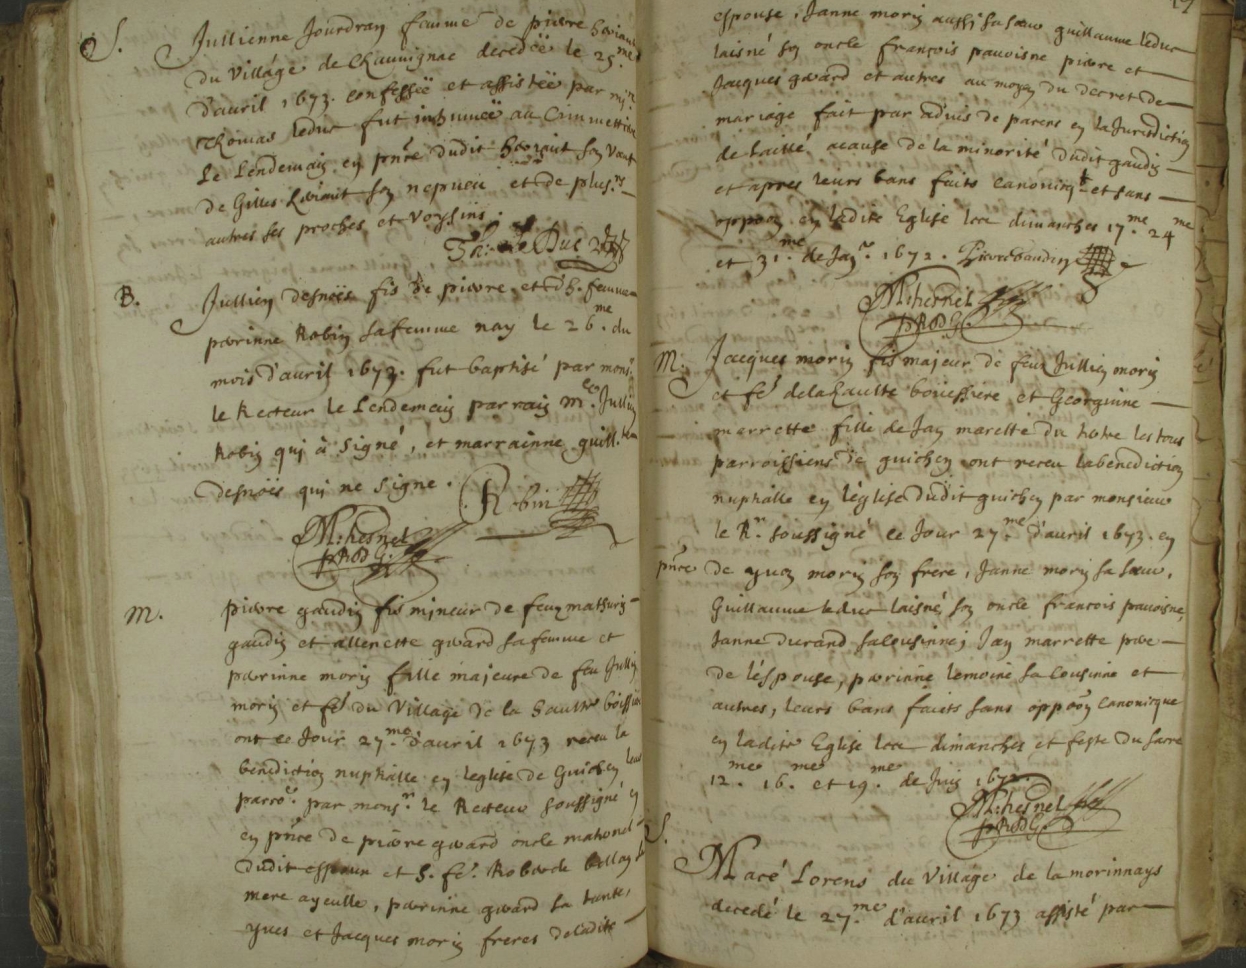 S. Jullienne Jourdran femme de pierre
du Village de Chauvignac decedée le 25.me
d'auril 1673. confessée et assistée par
Thomas leduc fut inhumée au Cimmettire
Le Lendemain en pnce dudit
de Gilles son nepueu et de plus.rs
autres ses proches et Voysins.
Th: le Duc
B. Jullien desnoës fis de pierre et d h. femme
perrinne Robin sa femme nay le 26.me du
mois d'auril 1673. fut baptisé par mons.
le Recteur le Lendemain parrain M.e Jullien
Robin qui à signé, et marrainne guill.
desnoës qui ne signe. Robin
M: hesnel
M. pierre gaudin fis mineur de feux mathurin
gaudin et allenette gerard sa femme et
perrinne morin fille majeure de feu Jullien
morin et fé du Village de la haulte boissier
ont ce Jour 27.me d'auril 1673 receu la
benediction nuptialle en leglise de Guichen
parro. par mons.r le Recteur soussigné
en pnce de pierre gerard oncle maternel
dudit espoux et h. fé. Roberde
mere ayeulle, perrinne gerard sa tante,
yues et Jacques morin freres deladite
espouse, Janne morin aussi sa sœur guillaume leduc
laisné son oncle françois pauoisne pierre et
Jacques gerard et autres au moyen du decret de
mariage fait par aduis de parens en la Jurisdiction
de laillé acause de la minorité dudit gaudin
et apres leurs bans faits canoniq.t et sans
oppoon en ladite Eglise les dimanches 17.me 24.me
et 31.me de Jan.r 1672. Pierre Gaudin
M: hesnel
M. Jacques morin fis majeur de feu Jullien morin
et fé delahaulte bouessiere et Georginne
marrette fille de Jan marette du tertre les tous
parroissiens de guichen ont receu labenediction
nuptialle en léglise dudit guichen par monsieur
le R.r soussigné ce Jour 27.me d'auril 1673. en
pnce de yues morin son frere, Janne morin sa sœur,
Guillaume leduc laisné son oncle françois pauoisne,
Janne durand sa cousinne, Jan marrette pere
de léspouse, perrinne lemoine sa cousinne et
autres, leurs bans faits sans oppoon canonicque
en ladite Eglise les dimanches et feste du sacre
12.me 16.me et 19.me de Juin 1672.
M: hesnel
S. Macé Lorens du Village de la morinnays
decedé le 27.me d'auril 1673 assisté par